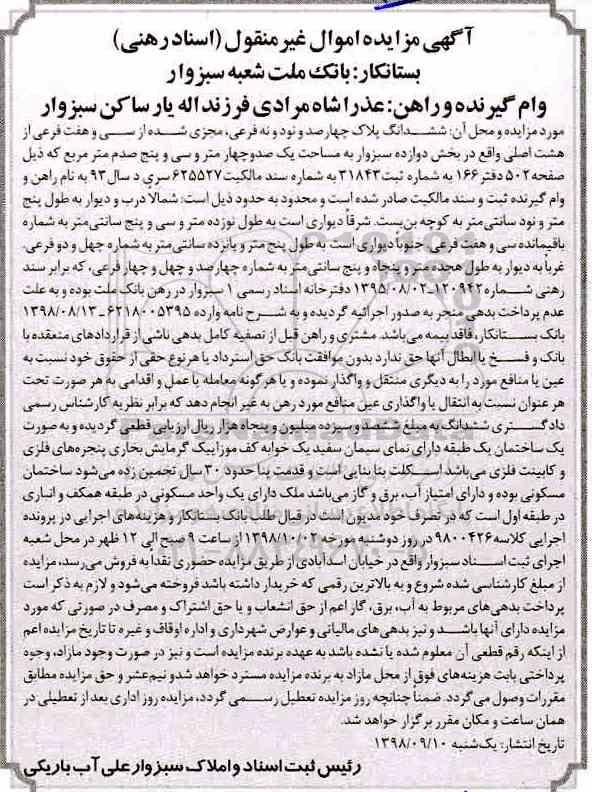 آگهی مزایده اموال غیرمنقول (اسناد رهنی)
بستانکار: بانک ملت شعبه سبزوار
وام گیرنده و راهن: عذرا شاه مرادی فرزند اله یار ساکن سبزوار
مورد مزایده و محل آن: ششدانگ پلاک چهارصد و نود و نه فرعی، مجزی شده از سی و هفت فرعی از
هشت اصلی واقع در بخش دوازده سبزوار به مساحت یک صدوچهار متر و سی و پنج صدم متر مربع که ذیل
صفحه ۵۰۲ دفتر ۱۶۶ به شماره ثبت ۳۱۸۴۳ به شماره سند مالکیت ۶۲۵۵۲۷ سری د سال ۹۳ به نام راهن و
وام گیرنده ثبت و سند مالکیت صادر شده است و محدود به حدود ذیل است: شمالاً درب و دیوار به طول پنج
متر و نود سانتی‌متر به کوچه بن‌بست. شرقاً دیواری است به طول نوزده متر و سی و پنج سانتی‌متر به شماره
باقیمانده سی و هفت فرعی. جنوباً دیواری است به طول پنج متر و پانزده سانتی‌متر به شماره چهل و دو فرعی.
غرباً به دیوار به طول هجده متر و پنجاه و پنج سانتی‌متر به شماره چهارصد و چهل و چهار فرعی، که برابر سند
رهنی شماره ۱۲۰۹۴۲-۱۳۹۵/۰۸/۰۲ دفترخانه اسناد رسمی ۱ سبزوار در رهن بانک ملت بوده و به علت
عدم پرداخت بدهی منجر به صدور اجرائیه گردیده و به شرح نامه وارده ۶۲۱۸۰۰۵۳۹۵-۱۳۹۸/۰۸/۱۳
بانک بستانکار، فاقد بیمه می‌باشد. مشتری و راهن قبل از تصفیه کامل بدهی ناشی از قراردادهای منعقده با
بانک و فسخ یا ابطال آنها حق ندارد بدون موافقت بانک حق استرداد یا هر نوع حقی از حقوق خود نسبت به
عین یا منافع مورد را به دیگری منتقل و واگذار نموده و یا هر گونه معامله یا عمل و اقدامی به هر صورت تحت
هر عنوان نسبت به انتقال یا واگذاری عین منافع مورد رهن به غیر انجام دهد که برابر نظریه کارشناس رسمی
دادگستری ششدانگ به مبلغ ششصد و سیزده میلیون و پنجاه هزار ریال ارزیابی قطعی گردیده و به صورت
یک ساختمان یک طبقه دارای نمای سیمان سفید یک خوابه کف موزاییک گرمایش بخاری پنجره‌های فلزی
و کابینت فلزی می‌باشد اسکلت بنا بنایی است و قدمت بنا حدود ۳۰ سال تخمین زده می‌شود ساختمان
مسکونی بوده و دارای امتیاز آب، برق و گاز می‌باشد ملک دارای یک واحد مسکونی در طبقه همکف و انباری
در طبقه اول است که در تصرف خود مدیون است در قبال طلب بانک بستانکار و هزینه‌های اجرایی در پرونده
اجرایی کلاسه ۹۸۰۰۴۲۶ در روز دوشنبه مورخه ۱۳۹۸/۱۰/۰۲ از ساعت ۹ صبح الی ۱۲ ظهر در محل شعبه
اجرای ثبت اسناد سبزوار واقع در خیابان اسدآبادی از طریق مزایده حضوری نقداً به فروش می‌رسد، مزایده
از مبلغ کارشناسی شده شروع و به بالاترین رقمی که خریدار داشته باشد فروخته می‌شود و لازم به ذکر است
پرداخت بدهی‌های مربوط به آب، برق، گاز اعم از حق انشعاب و یا حق اشتراک و مصرف در صورتی که مورد
مزایده دارای آنها باشد و نیز بدهی‌های مالیاتی و عوارض شهرداری و اداره اوقاف و غیره تا تاریخ مزایده اعم
از اینکه رقم قطعی آن معلوم شده یا نشده باشد به عهده برنده مزایده است و نیز در صورت وجود مازاد، وجوه
پرداختی بابت هزینه‌های فوق از محل مازاد به برنده مزایده مسترد خواهد شد و نیم‌عشر و حق مزایده مطابق
مقررات وصول می‌گردد. ضمناً چنانچه روز مزایده تعطیل رسمی گردد، مزایده روز اداری بعد از تعطیلی در
همان ساعت و مکان مقرر برگزار خواهد شد.
تاریخ انتشار: یک‌شنبه ۱۳۹۸/۰۹/۱۰
رئیس ثبت اسناد و املاک سبزوار علی آب باریکی